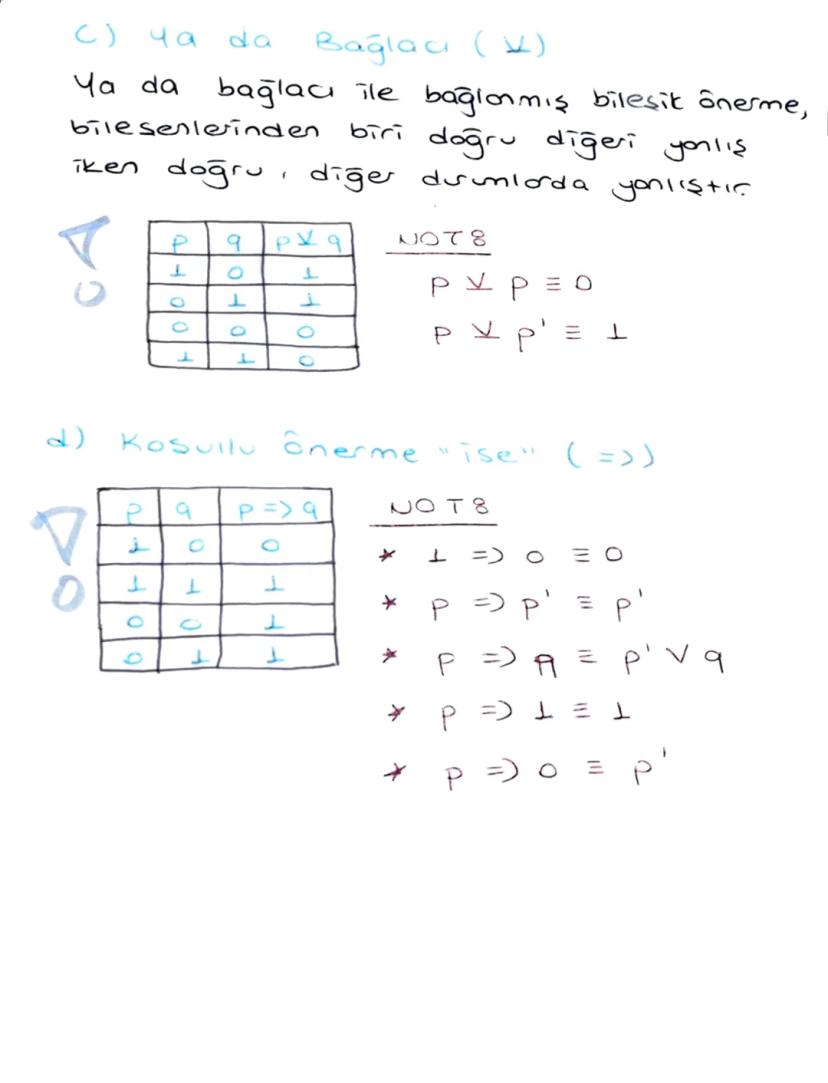 c) Ya da Bağlacı ( ⊻ )
Ya da bağlacı ile bağlanmış bileşik önerme,
bileşenlerinden biri doğru diğeri yanlış
iken doğru, diğer durumlarda yanlıştır.
p q p ⊻ q
1 0 1
0 1 1
0 0 0
1 1 0
NOT:
p ⊻ p ≡ 0
p ⊻ p' ≡ 1
d) Koşullu önerme "ise" ( => )
p q p => q
1 0 0
1 1 1
0 0 1
0 1 1
NOT:
* 1 => 0 ≡ 0
* p => p' ≡ p'
* p => q ≡ p' ∨ q
* p => 1 ≡ 1
* p => 0 ≡ p'